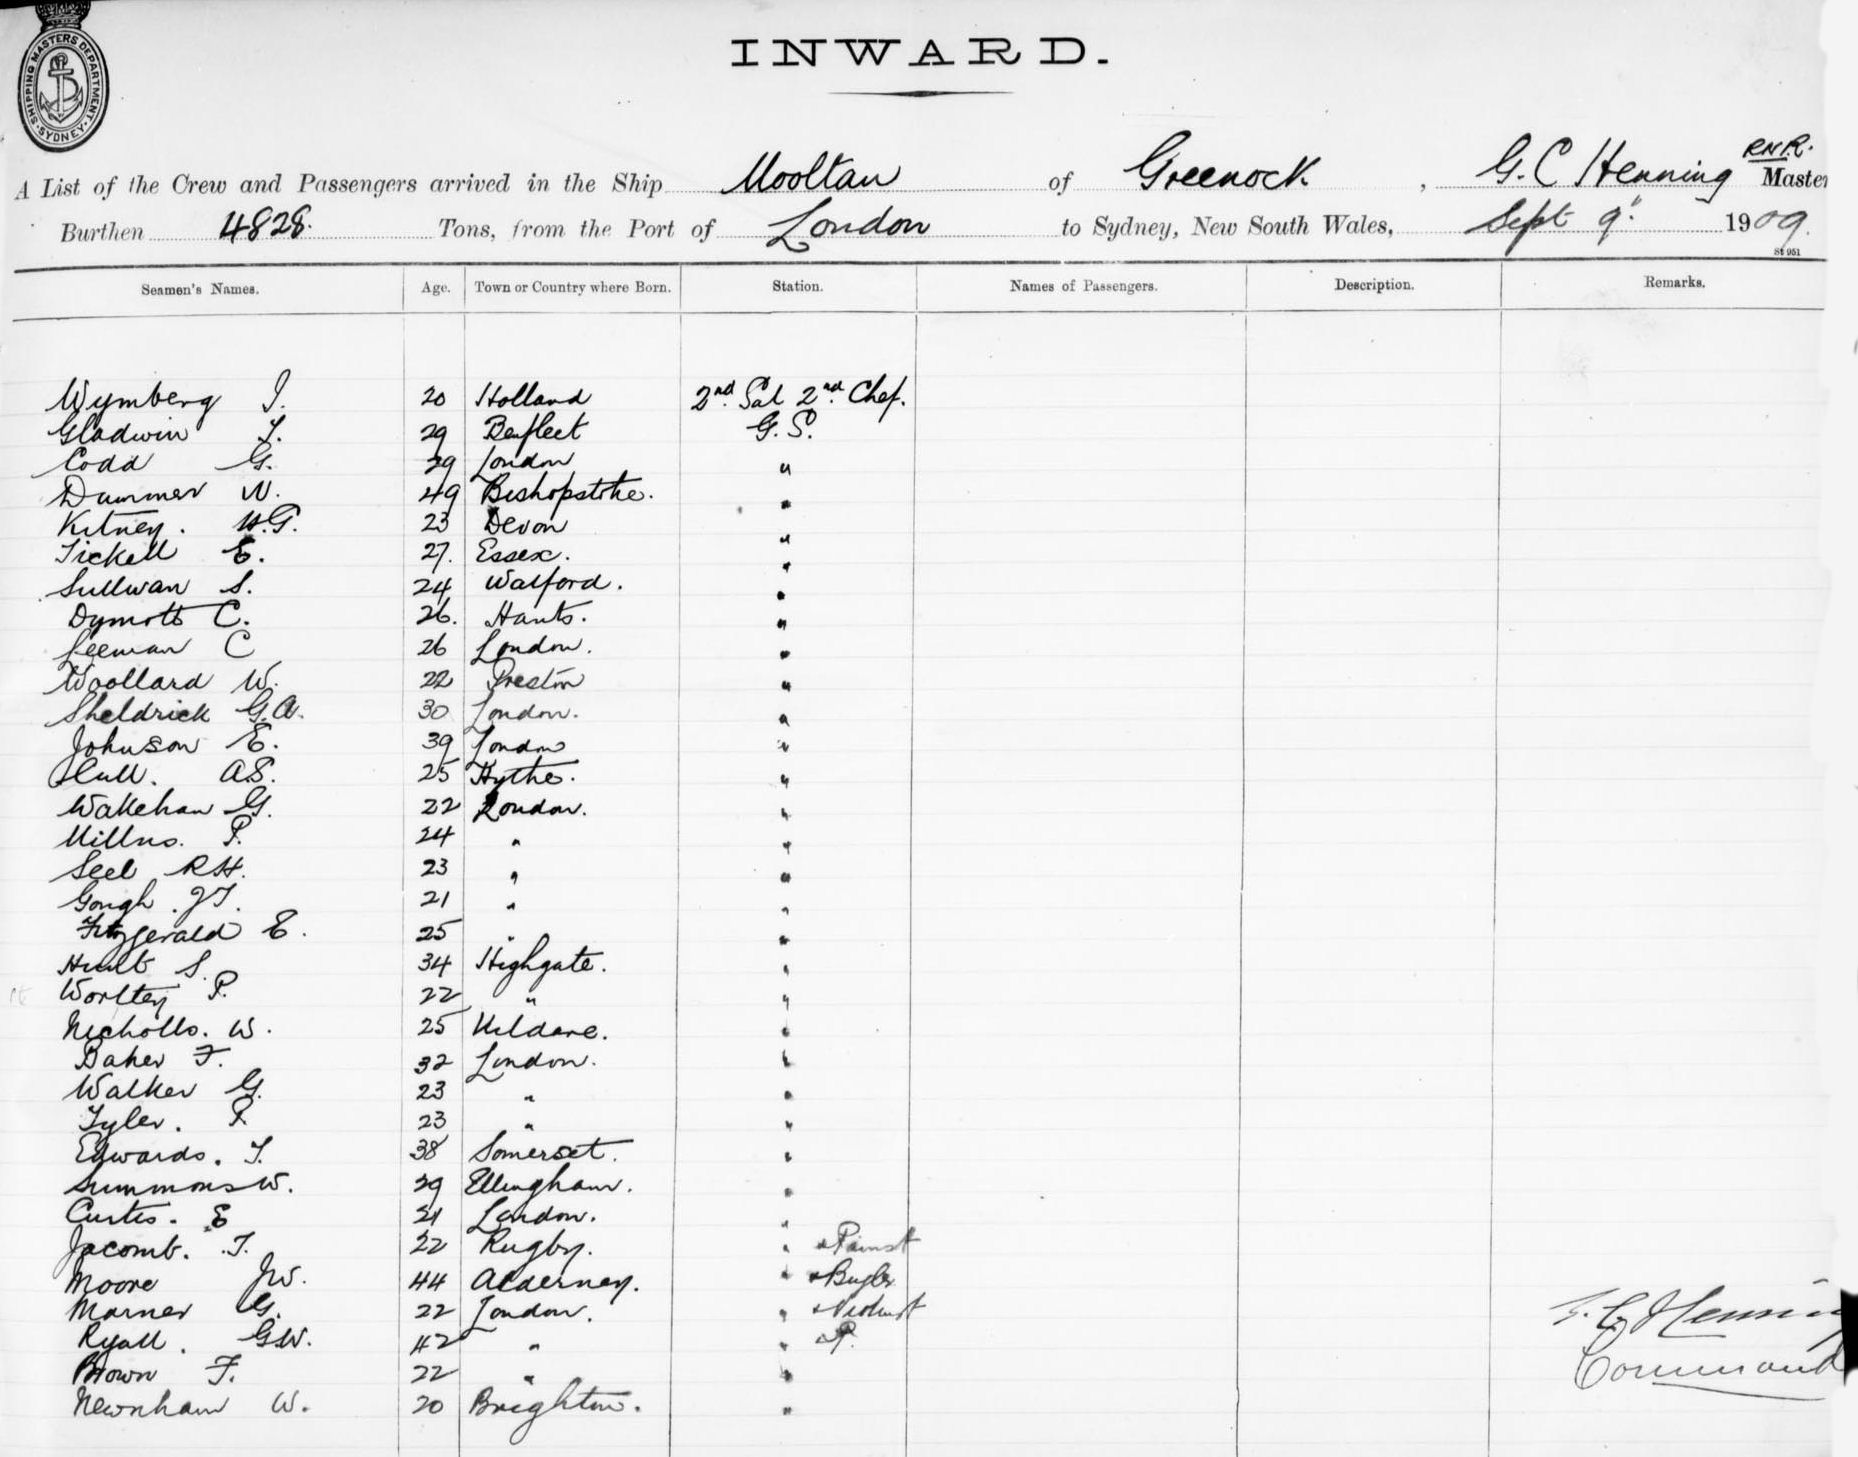 SHIPPING MASTERS DEPARTMENT
SYDNEY
INWARD.
A List of the Crew and Passengers arrived in the Ship Mooltan of Greenock, G. C Henning R.N.R. Master
Burthen 4828. Tons, from the Port of London to Sydney, New South Wales, Sept 9" 1909.
St 951
Seamen's Names. Age. Town or Country where Born. Station. Names of Passengers. Description. Remarks.
Wymberg J. 20 Holland 2nd Sal 2nd Chef.
Gladwin T. 29 Benfleet G.S.
Codd G. 29 London "
Dummer W. 49 Bishopstoke. "
Kitney. H.G. 23 Devon "
Tickell E. 27. Essex. "
Sullivan S. 24 Watford. "
Dymott C. 26. Hants. "
Leeman C 26 London. "
Woollard W. 22 Preston "
Sheldrick G.A. 30 London. "
Johnson E. 39 London "
Hull. A.S. 25 Hythe. "
Wakeham G. 22 London. "
Millns. P. 24 " "
Seel R H. 23 " "
Gough. J T. 21 " "
Fitzgerald E. 25 " "
Hunt S. 34 Highgate. "
Wortley P. 22 " "
Nicholls. W. 25 Kildare. "
Baker F. 32 London. "
Walker G. 23 " "
Tyler. P. 23 " "
Edwards. T. 38 Somerset. "
Summons W. 29 Ellingham. "
Curtis. E 21 London. "
Jacomb. T. 22 Rugby. "
Moore J W. 44 Alderney. " & Bugler
Marner G. 22 London. " & Violinist
Ryall. G.W. 42 " " & P.
Brown F. 22 " "
Newnham W. 20 Brighton. "
G. C. Henning
Command